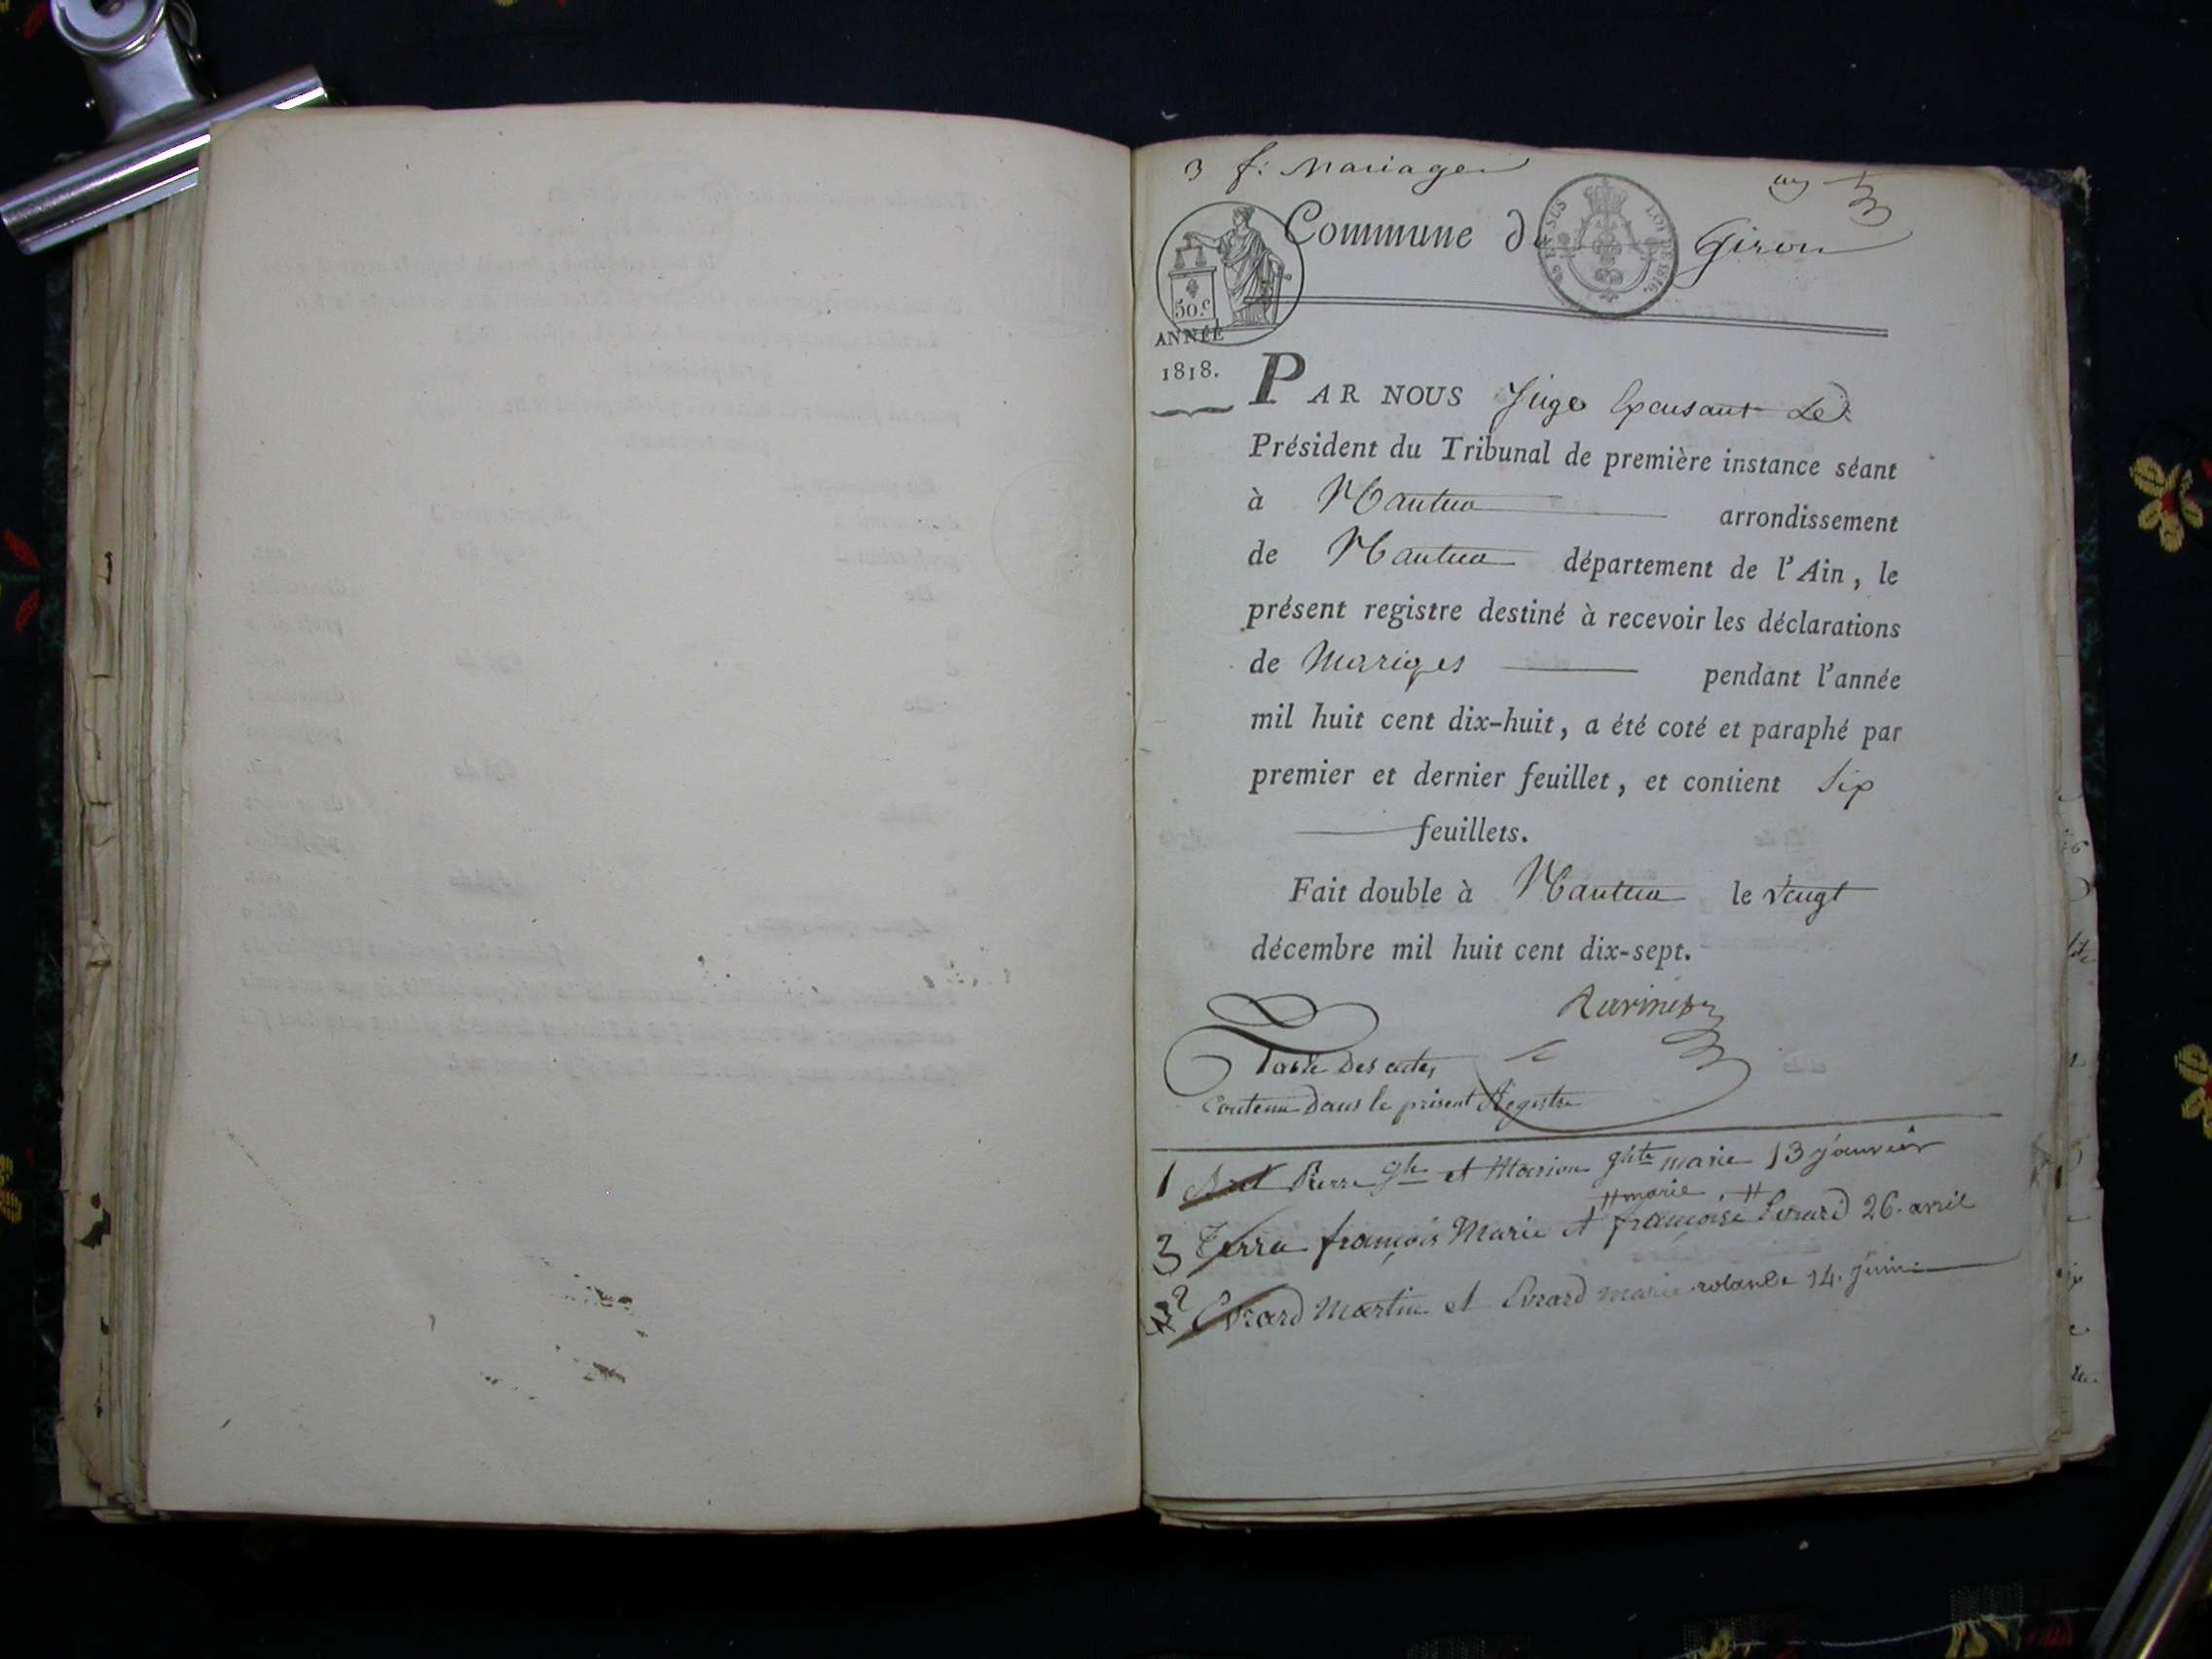 3 f: Mariages
Commune de Giron
50.c
65 EN SUS LOI DE 1816.
ANNÉE
1818.
PAR NOUS Juge Expensant Le
Président du Tribunal de première instance séant
à Nantua arrondissement
de Nantua département de l'Ain, le
présent registre destiné à recevoir les déclarations
de Mariges pendant l'année
mil huit cent dix-huit, a été coté et paraphé par
premier et dernier feuillet, et contient Six
feuillets.
Fait double à Nantua le vingt
décembre mil huit cent dix-sept.
Table Des actes
Contenu Dans le présent Registre
1 Pierre et Marion marie 13 janvier
# marie #
3 Terra françois Marie et françoise Evrard 26. avril
2 Evrard Martin et Evrard marie rolande 14. juin